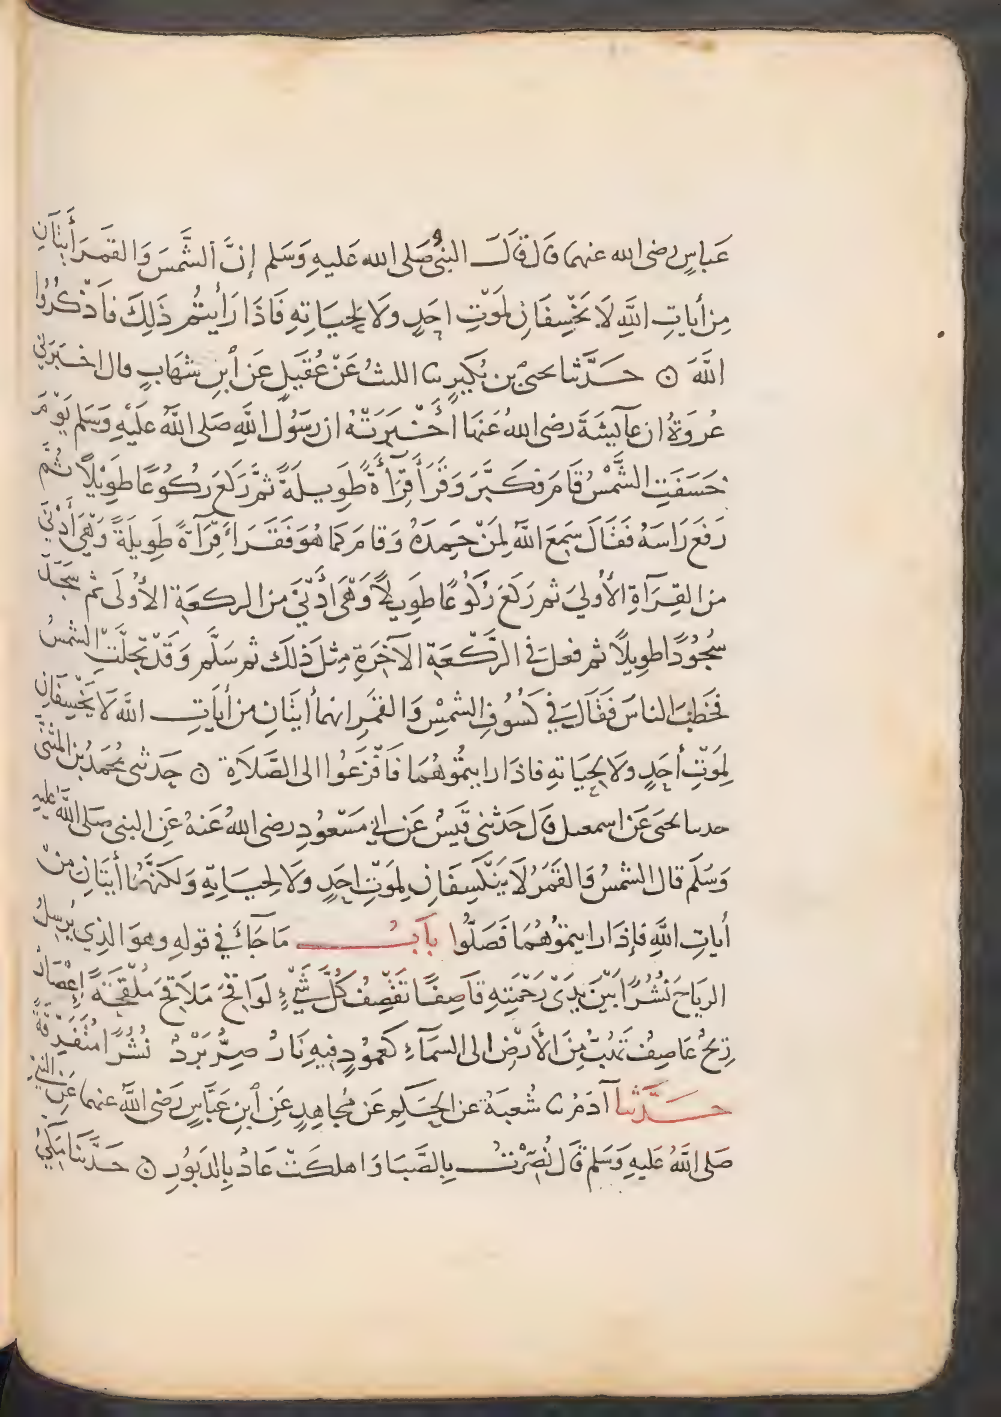 عَباسٍ رضى الله عنهما قَال قَالَ النبىُّ صَلى الله عَليهِ وَسَلم إنَّ الشَّمسَ وَالقمَرَ أيتَانِ
مِن أياتِ اللَّهِ لَا يَخْسِفَانِ لمَوْتِ احَدٍ ولَا لِحيَاتِهِ فَاذَا رَأيتُم ذَلِكَ فاَذْكُرُوا
اللَّهَ ۞ حَدَّثنا يحيىٰ بن بُكَيرٍ نا الليثُ عَنْ عُقَيلٍ عَن ابنِ شهَابٍ قال اخبَرَنِي
عُروَةُ ان عآيشَةَ رضى اللهُ عَنهَا اخْبَرَتْهُ ان رَسُولَ اللَّهِ صَلى اللَّهُ عَليْهِ وَسَلم يَوْمَ
خَسَفَتِ الشَّمْسُ قَامَ فكَبَّرَ وَقَرَأَ قِرَآءَةً طَوِيلَةً ثمَّ رَكَعَ رُكُوعًا طَوِيْلًا ثُمَّ
رَفعَ رَاسَهُ فَقَالَ سَمِعَ اللَّهُ لِمَنْ حَمِدَهُ وَقامَ كمَا هُوَ فَقَرَاءَ قِرَآءةً طوِيلَةً وَهْىَ أدْنَى
من القِرَآءةِ الأُولىَ ثم رَكَعَ رُكُوعًا طوِيلًا وَهْىَ أدْنَى من الركعَةِ الأُوْلَى ثم سَجَدَ
سُجُوْدًا طوِيلًا ثم فعلَ فى الرَّكْعَةِ الآخَرَةِ مِثلَ ذَلكَ ثم سَلَّم وَقَدْ تجَلَّتِ الشمسُ
فخَطبَ الناسَ فَقَالَ فِي كُسُوفِ الشمْسِ وَالقمَرِ انهمَا أيتَانِ من أياَتِ اللَّه لَا يَخْسِفَانِ
لِمَوْتِ أحَدٍ ولَا لِحيَاتِهِ فاذَا رايتُموْهُمَا فَافْزَعُوا الى الصَّلَاةِ ۞ حَدثنى مُحَمَدُ بن المثنىَّ
حدسا يحيَى عَن اسمعيل قَال حَدثنى قَيسٌ عَن ابى مَسْعُودٍ رضى اللهُ عَنهُ عَنِ النبى صَلى اللَّهُ عليه
وَسَلمَ قال الشمسُ وَالقمَرُ لَا يَنْكَسِفَانِ لِمَوْتِ احَدٍ ولَا لحيَاتِهِ وَلكنَّهُمَا أيَتَانِ مِنْ
أياتِ اللَّهِ فإذَا رايتموْهُمَا فَصَلُّوا بآبُ مَا جَآءَ في قولهِ وهوَ الذِي يُرسِلُ
الريَاحَ نُشُرًا بَيْنَ يَدَىْ رَحْمَتِهِ قاَصِفًا تَقْصِفُ كُلَّ شَىْءٍ لوَاقِحَ مَلَاقِحَ مُلْقِحَةً إِعْصَارٌ
رِيحٌ عَاصِفٌ تَهُبُّ مِنَ الأَرْضِ الى السمَآءِ كَعَمُودٍ فيهِ نَارٌ صِرٌّ بَرْدٌ نُشُرًا مُتَفَرِّقَةً
حَدَّثنا آدَمُ نا شُعبَةُ عَن الحَكمِ عَن مُجاهِدٍ عَنِ ابنِ عَبَّاسٍ رَضى اللَّهُ عنهما عَنِ النبيِّ
صَلى اللَّهُ عَليهِ وَسَلم قَال نُصِرْتُ بِالصَّبَا وَاهلكَتْ عَادٌ بِالدَبُورِ ۞ حَدَّثَنَا مَكيُّ